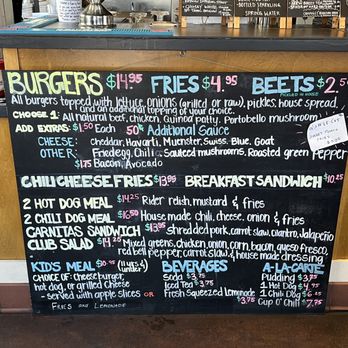 BOTTLED SPARKLING
SPRING WATER
BURGERS $14.95 FRIES $4.95 BEETS $2.5
All burgers topped with lettuce, onions (grilled or raw), pickles, house spread,
and an additional topping of your choice.
CHOOSE 1: All natural beef, chicken, Quinoa patty, Portobello mushroom
ADD EXTRAS: $1.50 Each 50¢ Additional Sauce
CHEESE: Cheddar, Havarti, Muenster, Swiss, Blue, Goat
OTHER: Fried egg, Chili, Sauteed mushrooms, Roasted green Pepper
$1.75 Bacon, Avocado
CHILI CHEESE FRIES $13.95 BREAKFAST SANDWICH $10.25
2 HOT DOG MEAL $14.25 Rider relish, mustard & fries
2 CHILI DOG MEAL $16.50 House made chili, cheese, onion & fries
CARNITAS SANDWICH $13.95 shredded pork, carrot slaw, cilantro, Jalapeño
CLUB SALAD $14.25 Mixed greens, chicken, onion, corn, bacon, queso fresco,
red bell pepper, carrot slaw, & house made dressing
KID'S MEAL $10.95 (11 yrs & under)
CHOICE OF: Cheeseburger,
hot dog, or grilled cheese
- served with apple slices OR
FRIES AND LEMONADE
BEVERAGES
Soda $3.75
Iced Tea $3.75
Fresh Squeezed Lemonade $3.75
A-LA-CARTE
1 Hot Dog $4.75
1 Chili Dog $6.25
Cup O' Chili $7.75